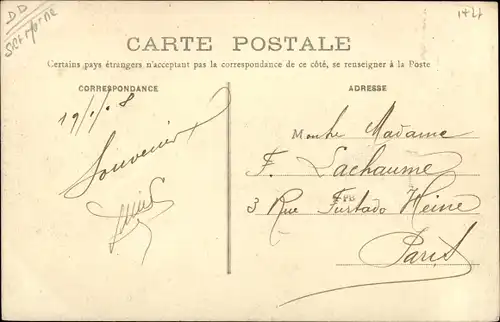 DD
Set Marne
CARTE POSTALE
Certains pays étrangers n'acceptant pas la correspondance de ce côté, se renseigner à la Poste
CORRESPONDANCE
ADRESSE
19/1/08
Souvenir
Madame
F. Lachaume
3 Rue Furtado Heine
Paris